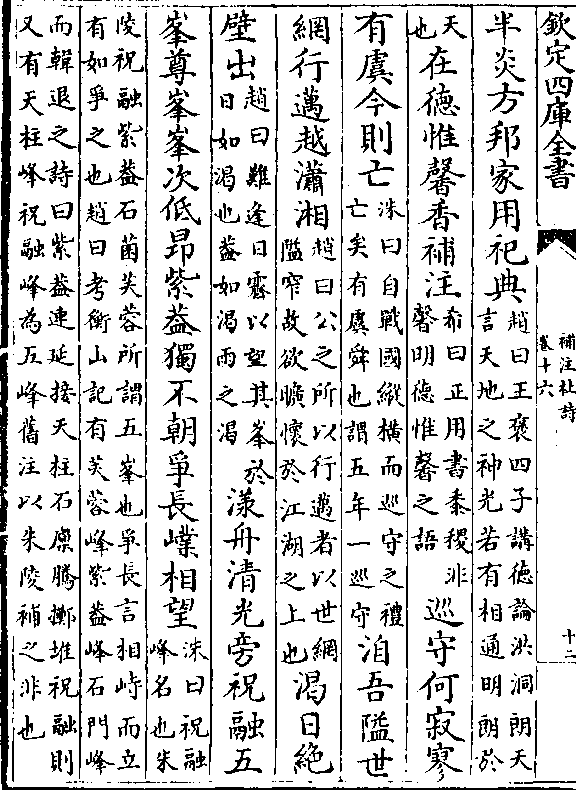 欽定四庫全書
補注杜詩
卷十六
十二
半炎方邦家用祀典
趙曰王褒四子講德論洪洞朗天
言天地之神光若有相通明朗於
天
也
在德惟馨香補注
希曰正用書黍稷非
馨明德惟馨之語
巡守何寂寥
有虞今則亡
洙曰自戰國縱橫而巡守之禮
亡矣有虞舜也謂五年一巡守
洎吾隘世
網行邁越瀟湘
趙曰公之所以行邁者以世網
隘窄故欲曠懷於江湖之上也
渴日絕
壁出
趙曰難逢日霽以望其峯於
日如渴也葢如渴雨之渴
漾舟清光旁祝融五
峯尊峯峯次低昂紫葢獨不朝爭長嶪相望
洙曰祝融
峰名也朱
陵祝融紫葢石菌芙蓉所謂五峯也爭長言相峙而立
有如爭之也趙曰考衡山記有芙蓉峰紫葢峰石門峰
而韓退之詩曰紫葢連延接天柱石廩騰擲堆祝融則
又有天柱峰祝融峰為五峰舊注以朱陵補之非也